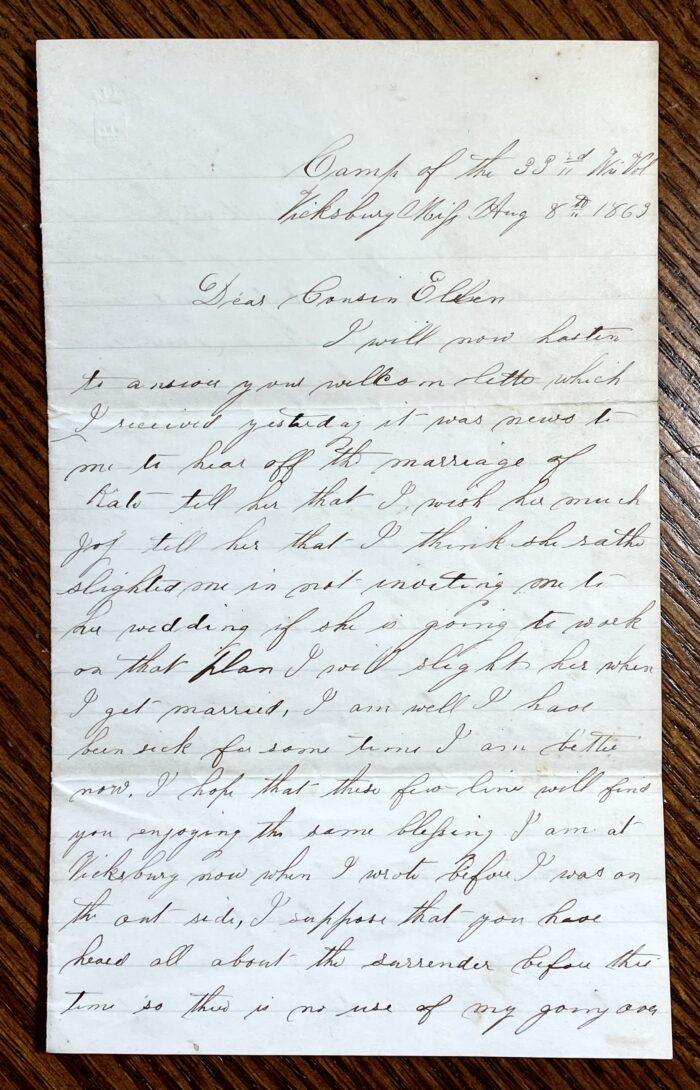 Camp of the 33rd Wis Vol
Vicksburg Miss Aug 8th 1863
Dear Cousin Ellen
I will now hasten
to answer your wellcom letter which
I received yesterday it was news to
me to hear off the marriage of
Kate tell her that I wish her much
joy tell her that I think she rathe
slighted me in not inviting me to
her wedding if she is going to work
on that plan I will slight her when
I get married, I am well I have
been sick for some time I am better
now. I hope that these few line will find
you enjoying the same blessing I am at
Vicksburg now when I wrote before I was on
the out side, I suppose that you have
heard all about the surrender before this
time so there is no use of my going over